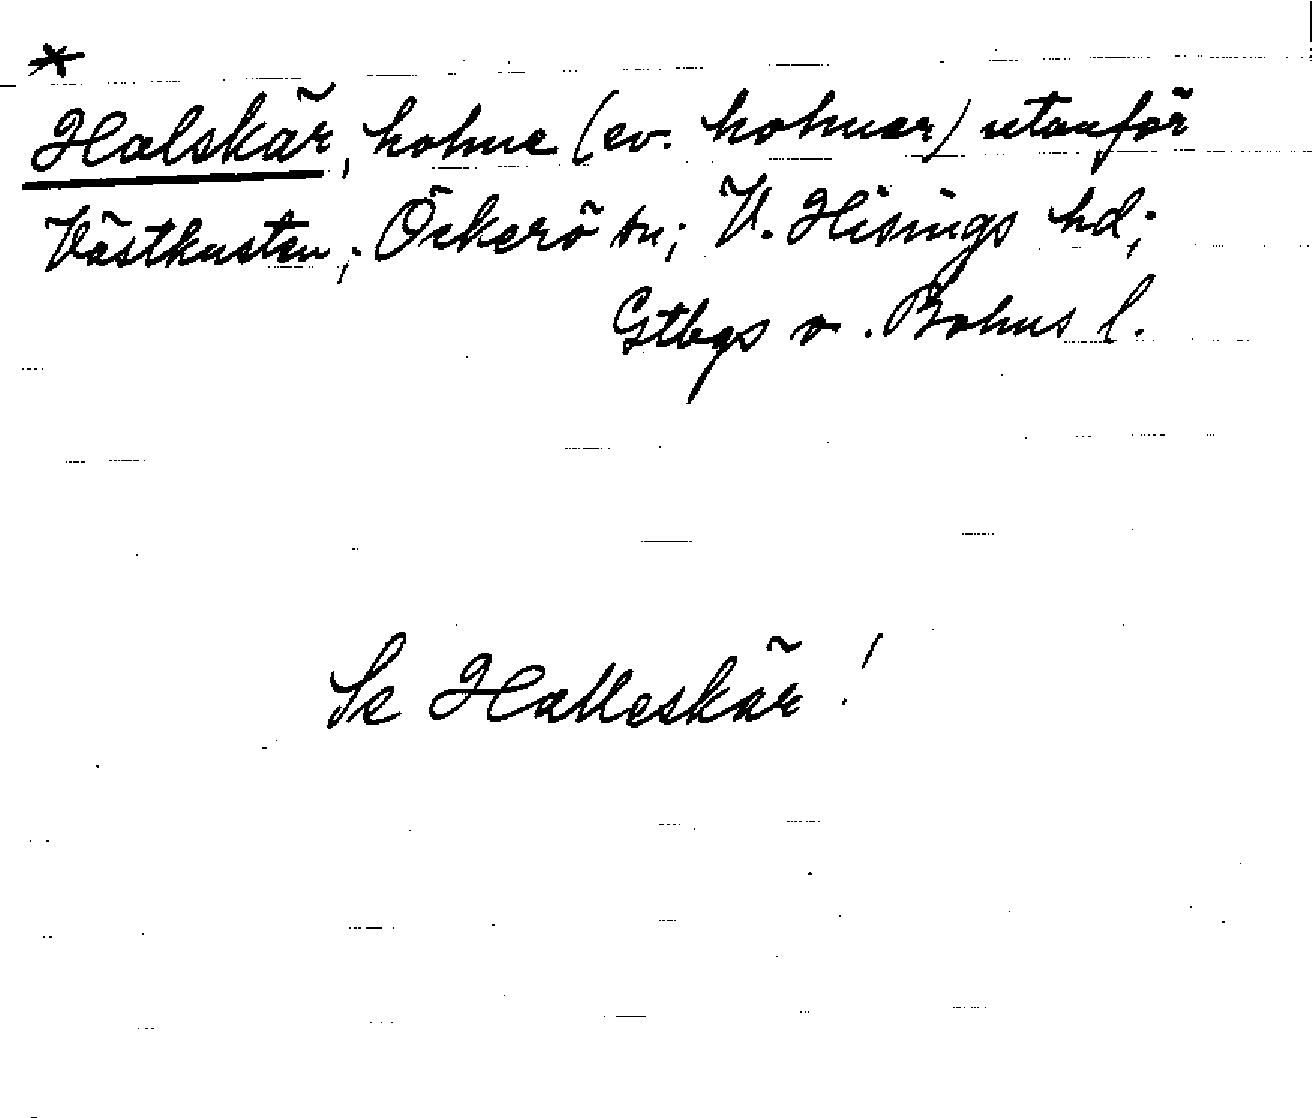 *
Halskär, holme (ev. holmar) utanför
Västkusten; Öckerö sn; V. Hisings hd;
Gtbgs o. Bohus l.
Se Halleskär!